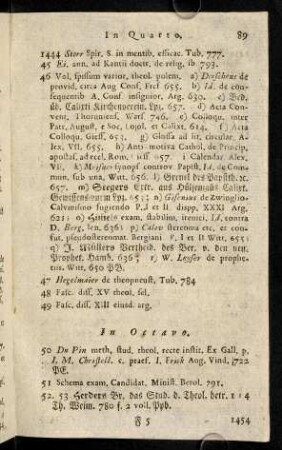 In Quarto. 89
1444 Storr Spir. S. in mentib. efficac. Tub. 777.
45 Ei. ann. ad Kantii doctr. de relig. ib 793.
46 Vol. spissum varior. theol. polem. a) Dorscheus de
provid. circa Aug Conf. Frcf 655. b) Id. de con-
sequentib A. Conf. insignior. Arg. 630. c) Bed.
db. Calixti Kirchenverein. Lpz. 657. d) Acta Con-
vent, Thoruniens. Warf 746. e) Colloqu. inter
Patr. August. e Soc. Jojol. et Calixt. 614. f) Acta
Colloqu. Gieff. 653. g) Glossa ad lit. circular. A-
lex. VII. 655. h) Anti-motiva Cathol. de Princip.
apostaf. ad eccl. Rom. 1657. i) Calendar. Alex.
VII. k) Meisner Synops. controv. Papist. Id. de Commun.
sub una, Witt. 656. l)
657. m) Stegers Extr. aus Hülsemans Calixt.
Gewissenswurm Lpz. 654. n) Gisenius de Zwinglio-
Calvinismo fugiendo P. I et II disp. XXXI Arg.
621. o) stabilim. irenici, Id. contra
D. Berg. 636. p) Calov
fut. pseudostereomat. Bergiani P. I et II Witt. 655.
q) J. Müllers Vertheid. des Ber. v. den neu.
Prophet. Hamb. 636. r) W. Leyser de prophe-
tiis. Witt. 650 PB.
47 Hegelmaier de theopneust. Tub. 784
48 Fasc. diss. XV theol. sel.
49 Fasc. diss. XIII eiusd. arg.
In Octavo.
50 Du Pin meth. stud. theol. recte instit. Ex Gall. p.
I. M. Christell. c. praef. I. Frick Aug. Vind. 1722
PE.
51 Schema exam. Candidat. Minist. Berol. 791.
52. 53 Herders Br. das Stud. d. Theol. betr. 1-4
Th. Weim. 780 f. 2 voll. Ppb.
F 5 1454